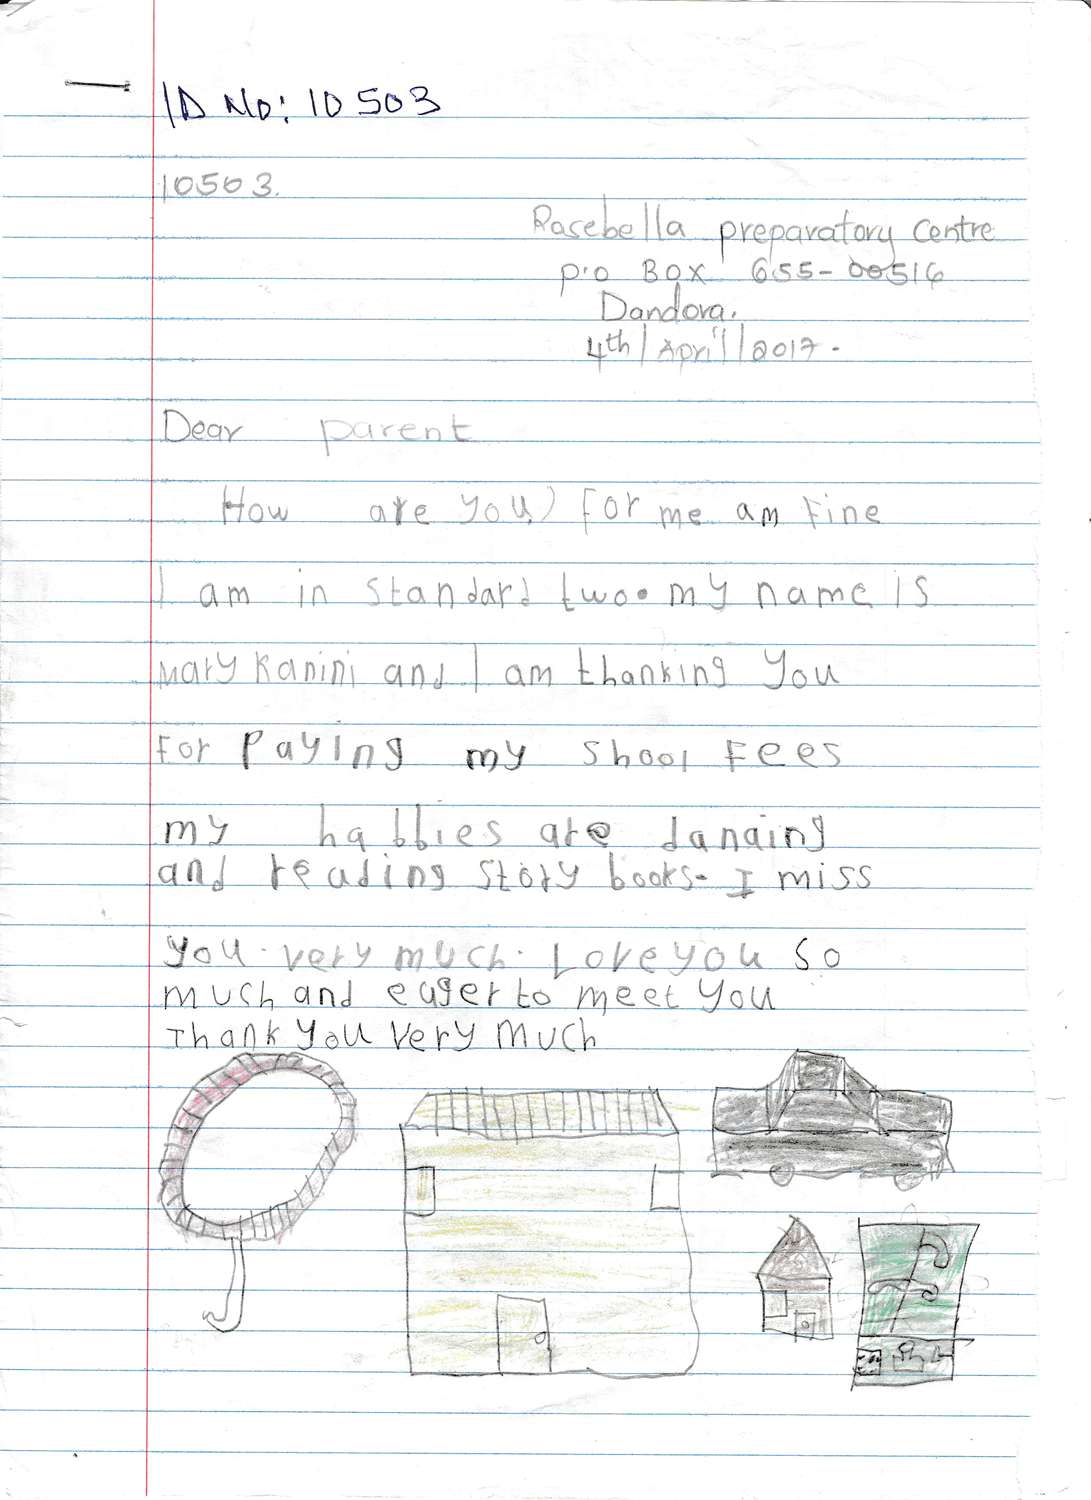 ID No: 10503
10503.
Rosebella preparatory centre
p.o BOX 655-00516
Dandora.
4th/April/2017.
Dear parent
How are you) for me am fine
I am in standard two. my name is
mary Kanini and I am thanking you
for paying my shool fees
my habbies are dancing
and reading story books- I miss
you. very much. Love you so
much and eager to meet you
Thank you very much